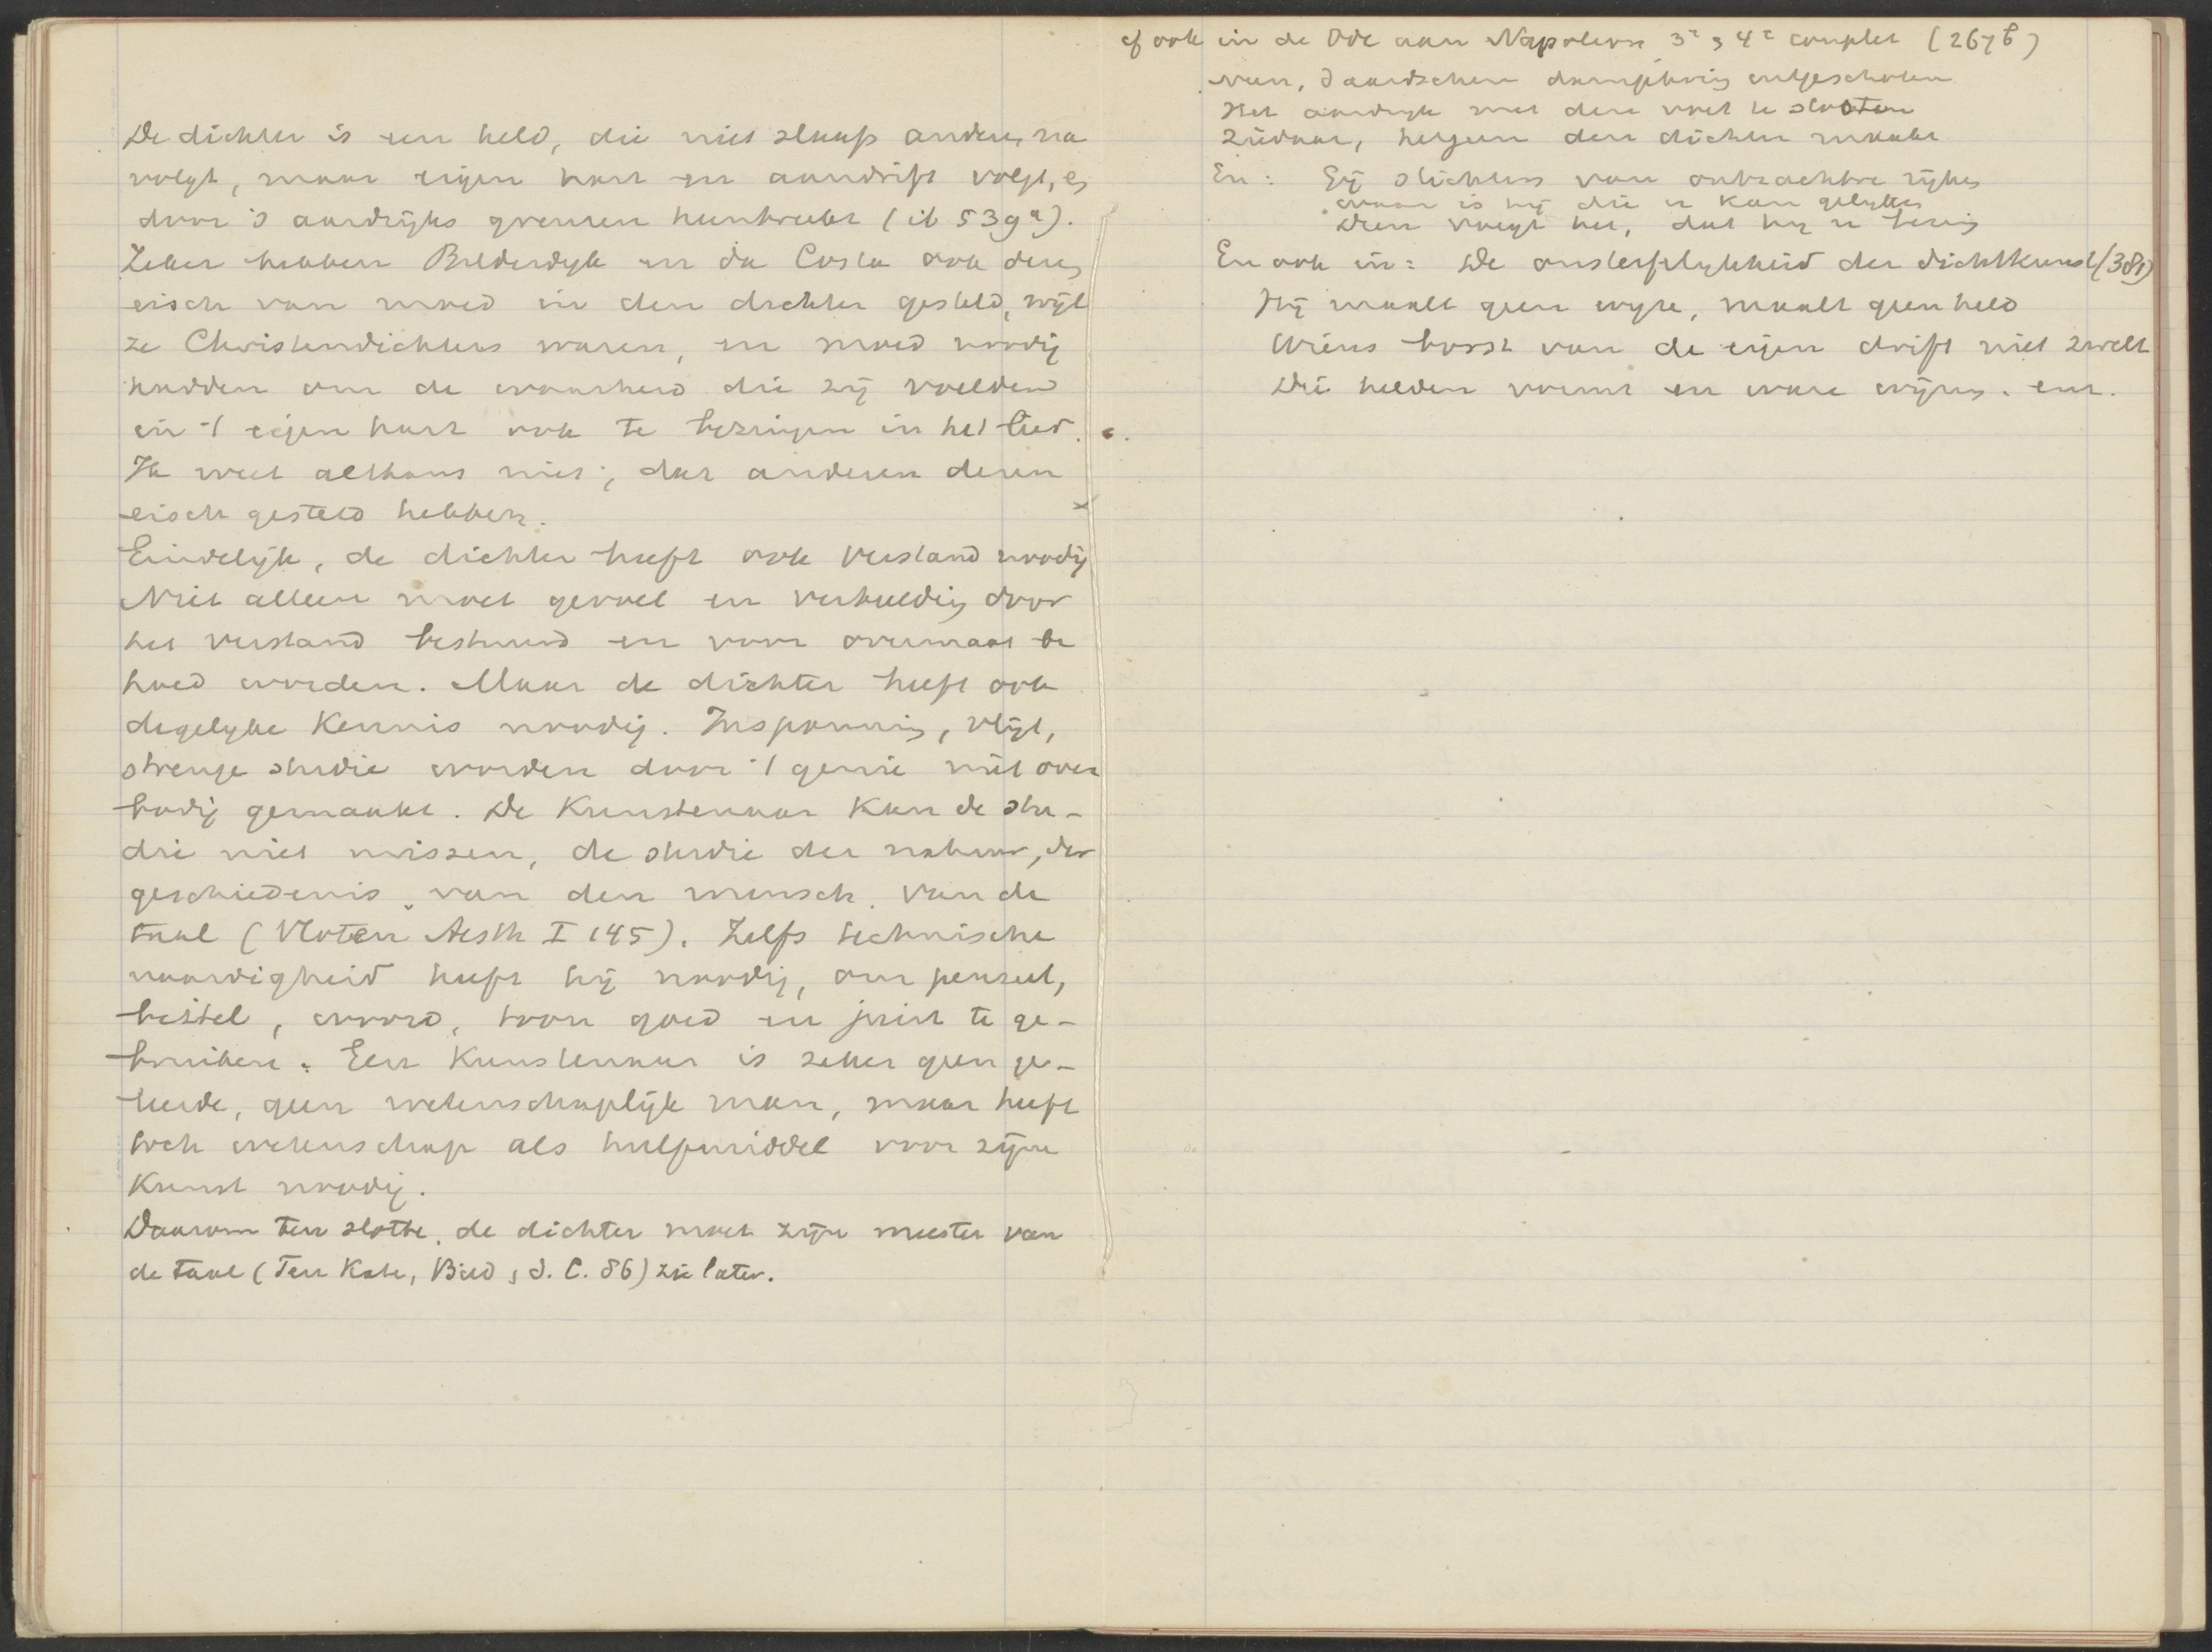 De dichter is een held, die niet slaafs anderen na
volgt, maar eigen hart en aandrift volgt, en
door 's aardrijks grenzen heenbreekt (ib 539a).
Zeker hebben Bilderdyk en da Costa ook dezen
eisch van moed in den dichter gesteld, wijl
ze Christendichters waren, en moed noodig
hadden om de waarheid die zij voelden
in 't eigen hart ook te bezingen in het lied.
Ik weet althans niet, dat anderen dezen
eisch gesteld hebben.
Eindelijk, de dichter heeft ook verstand noodig
Niet alleen moet gevoel en verbeelding door
het verstand bestuurd en voor overmaat be
hoed worden. Maar de dichter heeft ook
degelyke kennis noodig. Inspanning, vlijt,
strenge studie worden door 't genie niet over
bodig gemaakt. De Kunstenaar kan de stu-
die niet missen, de studie der natuur, der
geschiedenis, van den mensch, van de
taal (Vloten Aesth I 145). Zelfs technische
vaardigheid heeft hij noodig, om penseel,
beitel, woord, toon goed en juist te ge-
bruiken. Een Kunstenaar is zeker geen ge-
leerde, geen wetenschaplijk man, maar heeft
toch wetenschap als hulpmiddel voor zijne
Kunst noodig.
Daarom ten slotte, de dichter moet zijn meester van
de taal (Ten Kate, Bild, d. C. 86) zie later.
cf ook in de Ode aan Napoleon 3e, 4e couplet (267b)
Neen, d'aardschen dampkring uitgeschoten
Het aardryk met den voet te stooten
Ziedaar, hetgeen den dichter maakt
En: Gij stichters van ontzachbre rijken
Waar is hij die u kan gelijken
Dien voegt het, dat hij u bezing
En ook in: De onsterflykheid der dichtkunst (381)
Hij maalt geen wyze, maalt geen held
Wiens borst van de eigen drift niet zwelt
Die helden vormt en ware wijzen. enz.